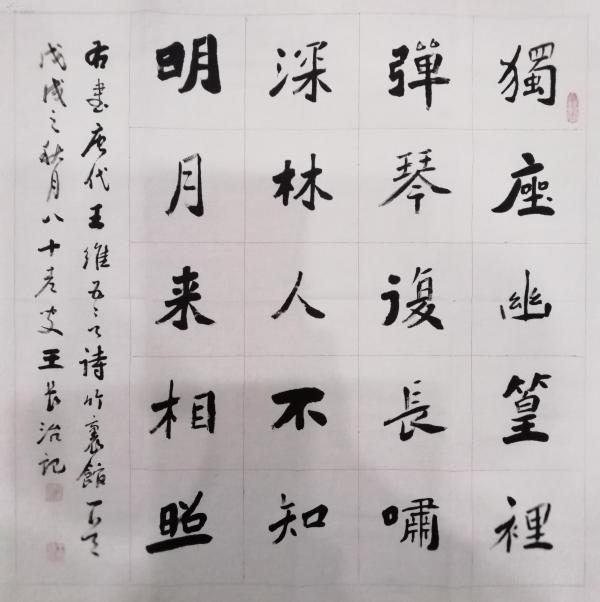 獨座幽篁裡
彈琴復長嘯
深林人不知
明月来相照
右書唐代王維五言詩竹裏館一首
戊戌之秋月八十老叟王長治記